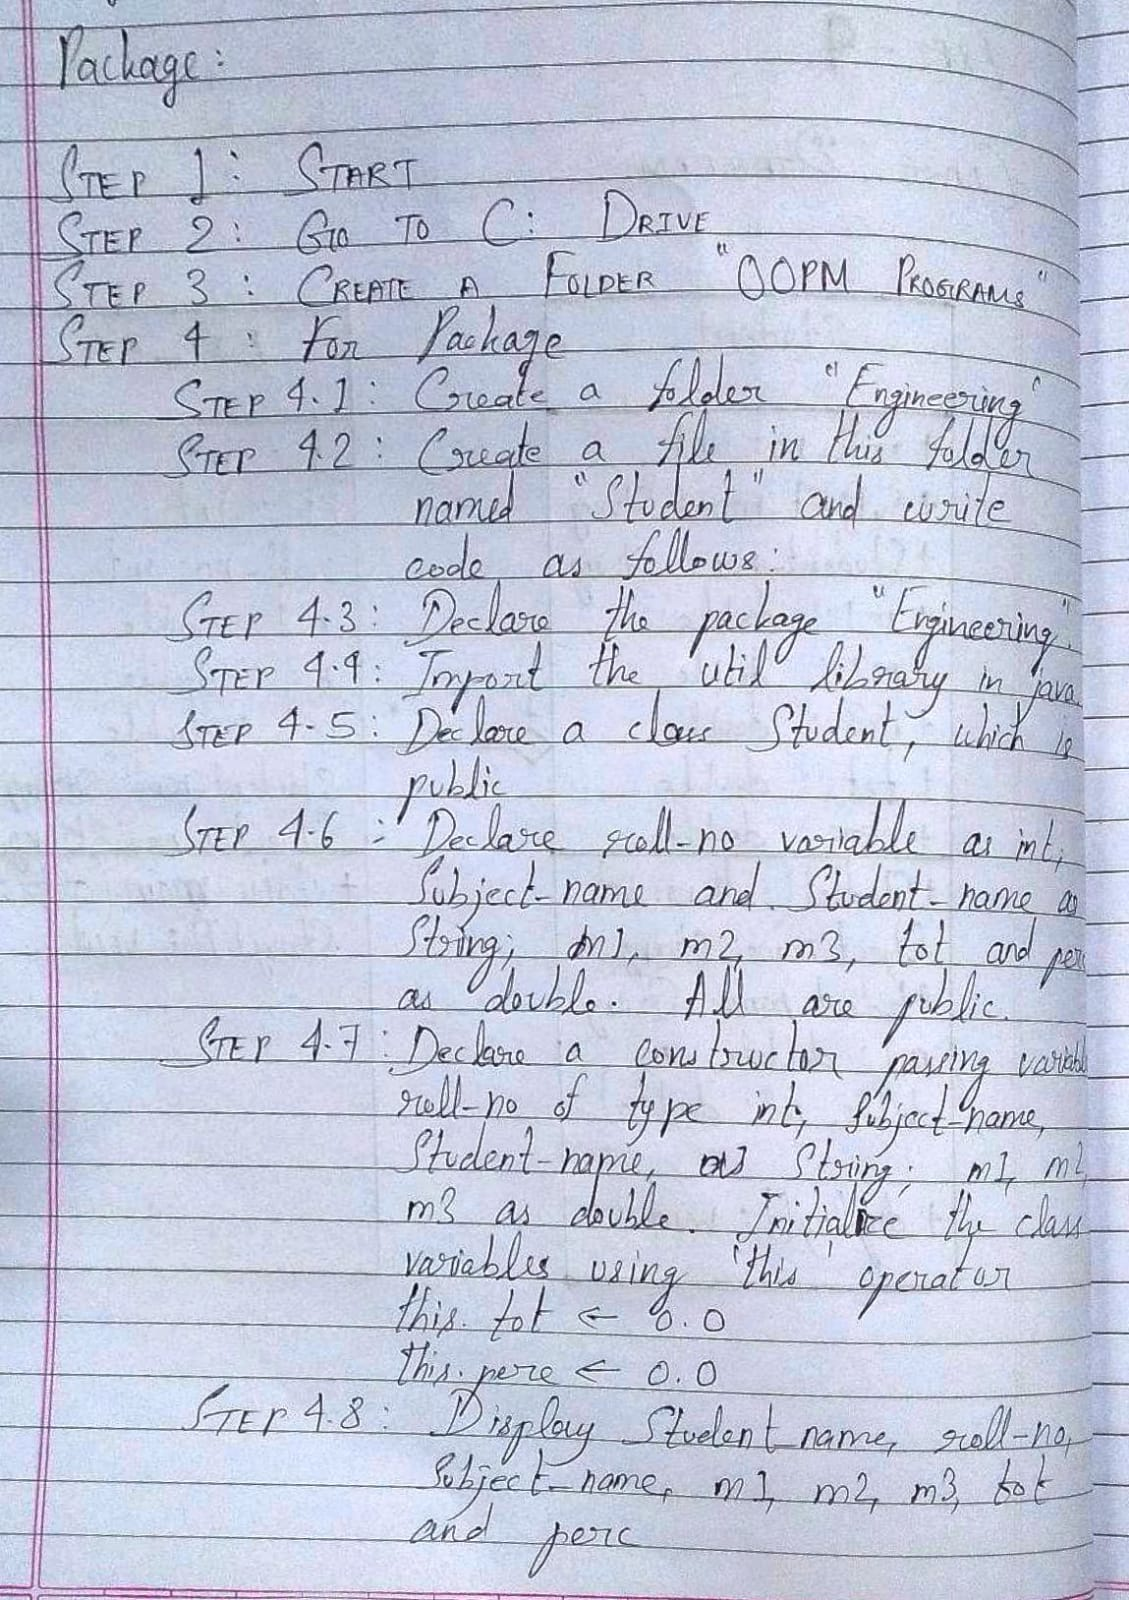 Package:
STEP 1: START
STEP 2: GO TO C: DRIVE
STEP 3: CREATE A FOLDER "OOPM PROGRAMS"
STEP 4: For Package
STEP 4.1: Create a folder "Engineering"
STEP 4.2: Create a file in this folder
named "Student" and write
code as follows:
STEP 4.3: Declare the package "Engineering".
STEP 4.4: Import the util library in java.
STEP 4.5: Declare a class Student, which is
public
STEP 4.6: Declare roll-no variable as int;
Subject-name and Student-name as
String; m1, m2, m3, tot and per
as double. All are public.
STEP 4.7: Declare a constructor passing variabl
roll-no of type int, Subject-name,
Student-name, as String; m1, m2,
m3 as double. Initialize the class
variables using 'this' operator
this.tot ← 0.0
this.perc ← 0.0
STEP 4.8: Display Student name, roll-no,
Subject-name, m1, m2, m3, tot
and perc